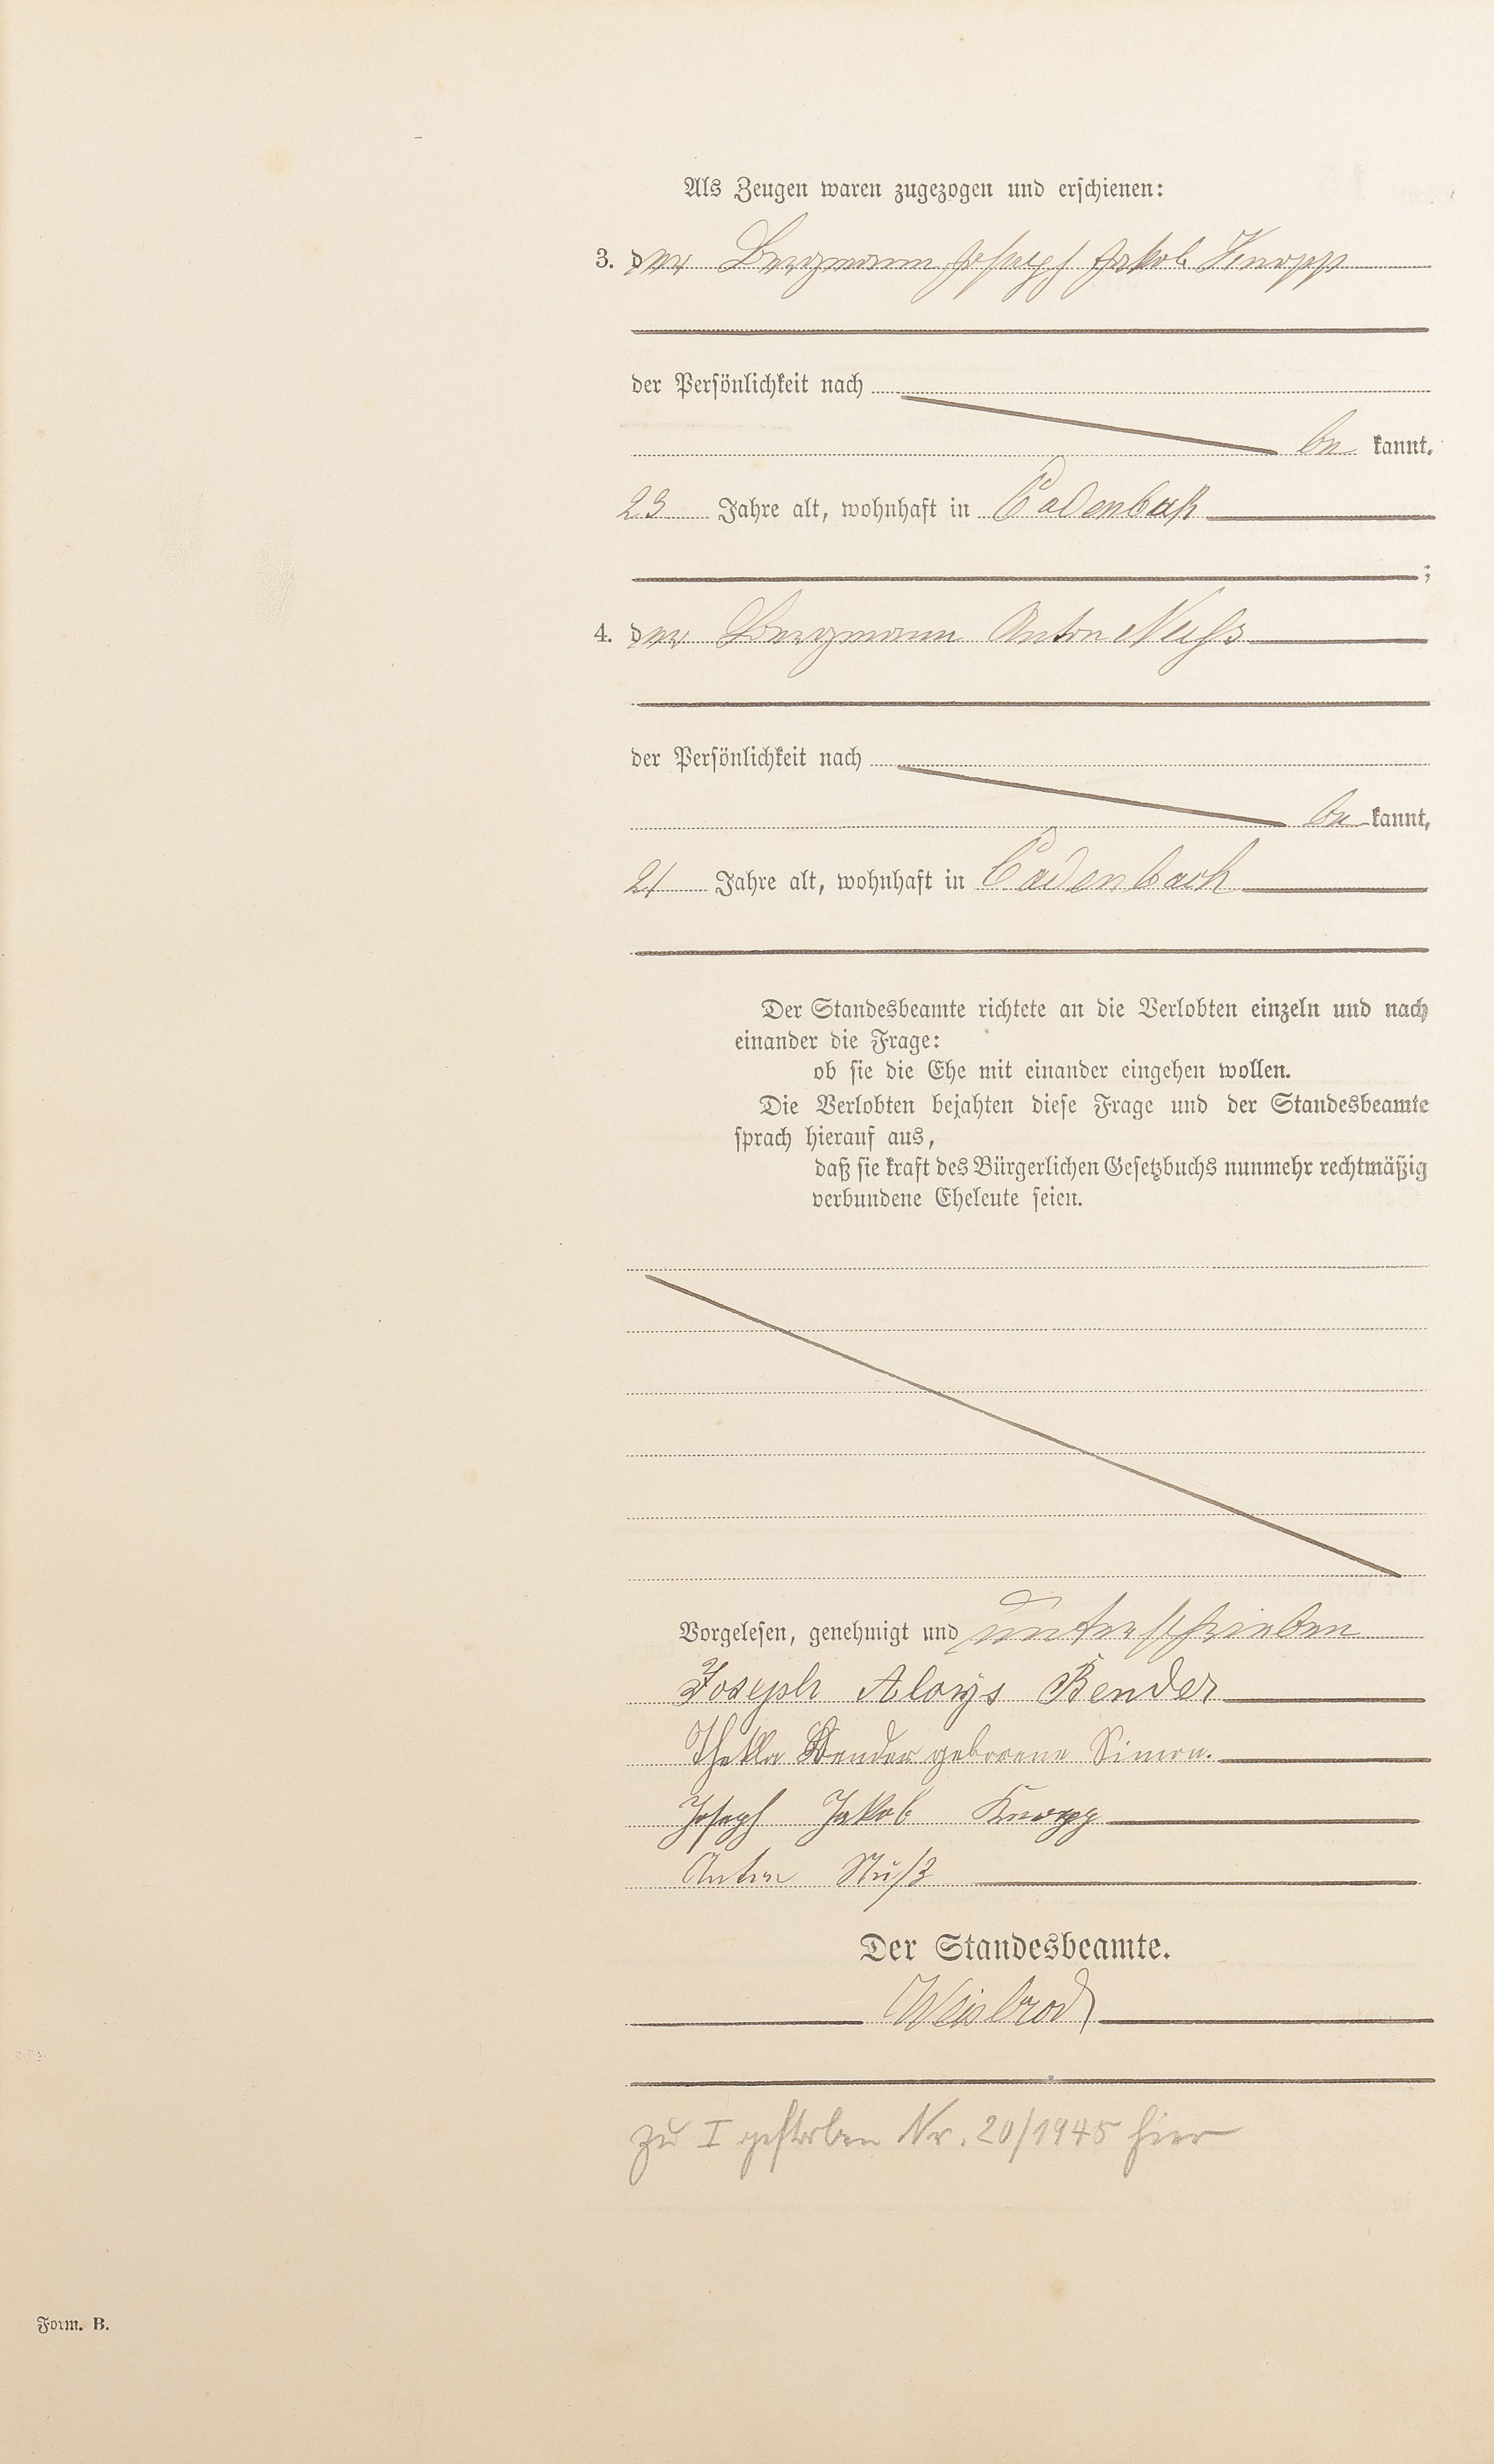 Als Zeugen waren zugezogen und erschienen:
3. der Bergmann Joseph Jakob Knopp
der Persönlichkeit nach
be kannt.
23 Jahre alt, wohnhaft in Cadenbach
;
4. der Bergmann Anton Nuß
der Persönlichkeit nach
be kannt,
21 Jahre alt, wohnhaft in Cadenbach
Der Standesbeamte richtete an die Verlobten einzeln und nach
einander die Frage:
ob sie die Ehe mit einander eingehen wollen.
Die Verlobten bejahten diese Frage und der Standesbeamte
sprach hierauf aus,
daß sie kraft des Bürgerlichen Gesetzbuchs nunmehr rechtmäßig
verbundene Eheleute seien.
Vorgelesen, genehmigt und unterschrieben
Joseph Aloys Bender
Thekla Bender geborene Simon.
Joseph Jakob Knopp
Anton Nuß
Der Standesbeamte.
Weisbrod
zu I gestorben Nr. 20/1945 hier
Form. B.